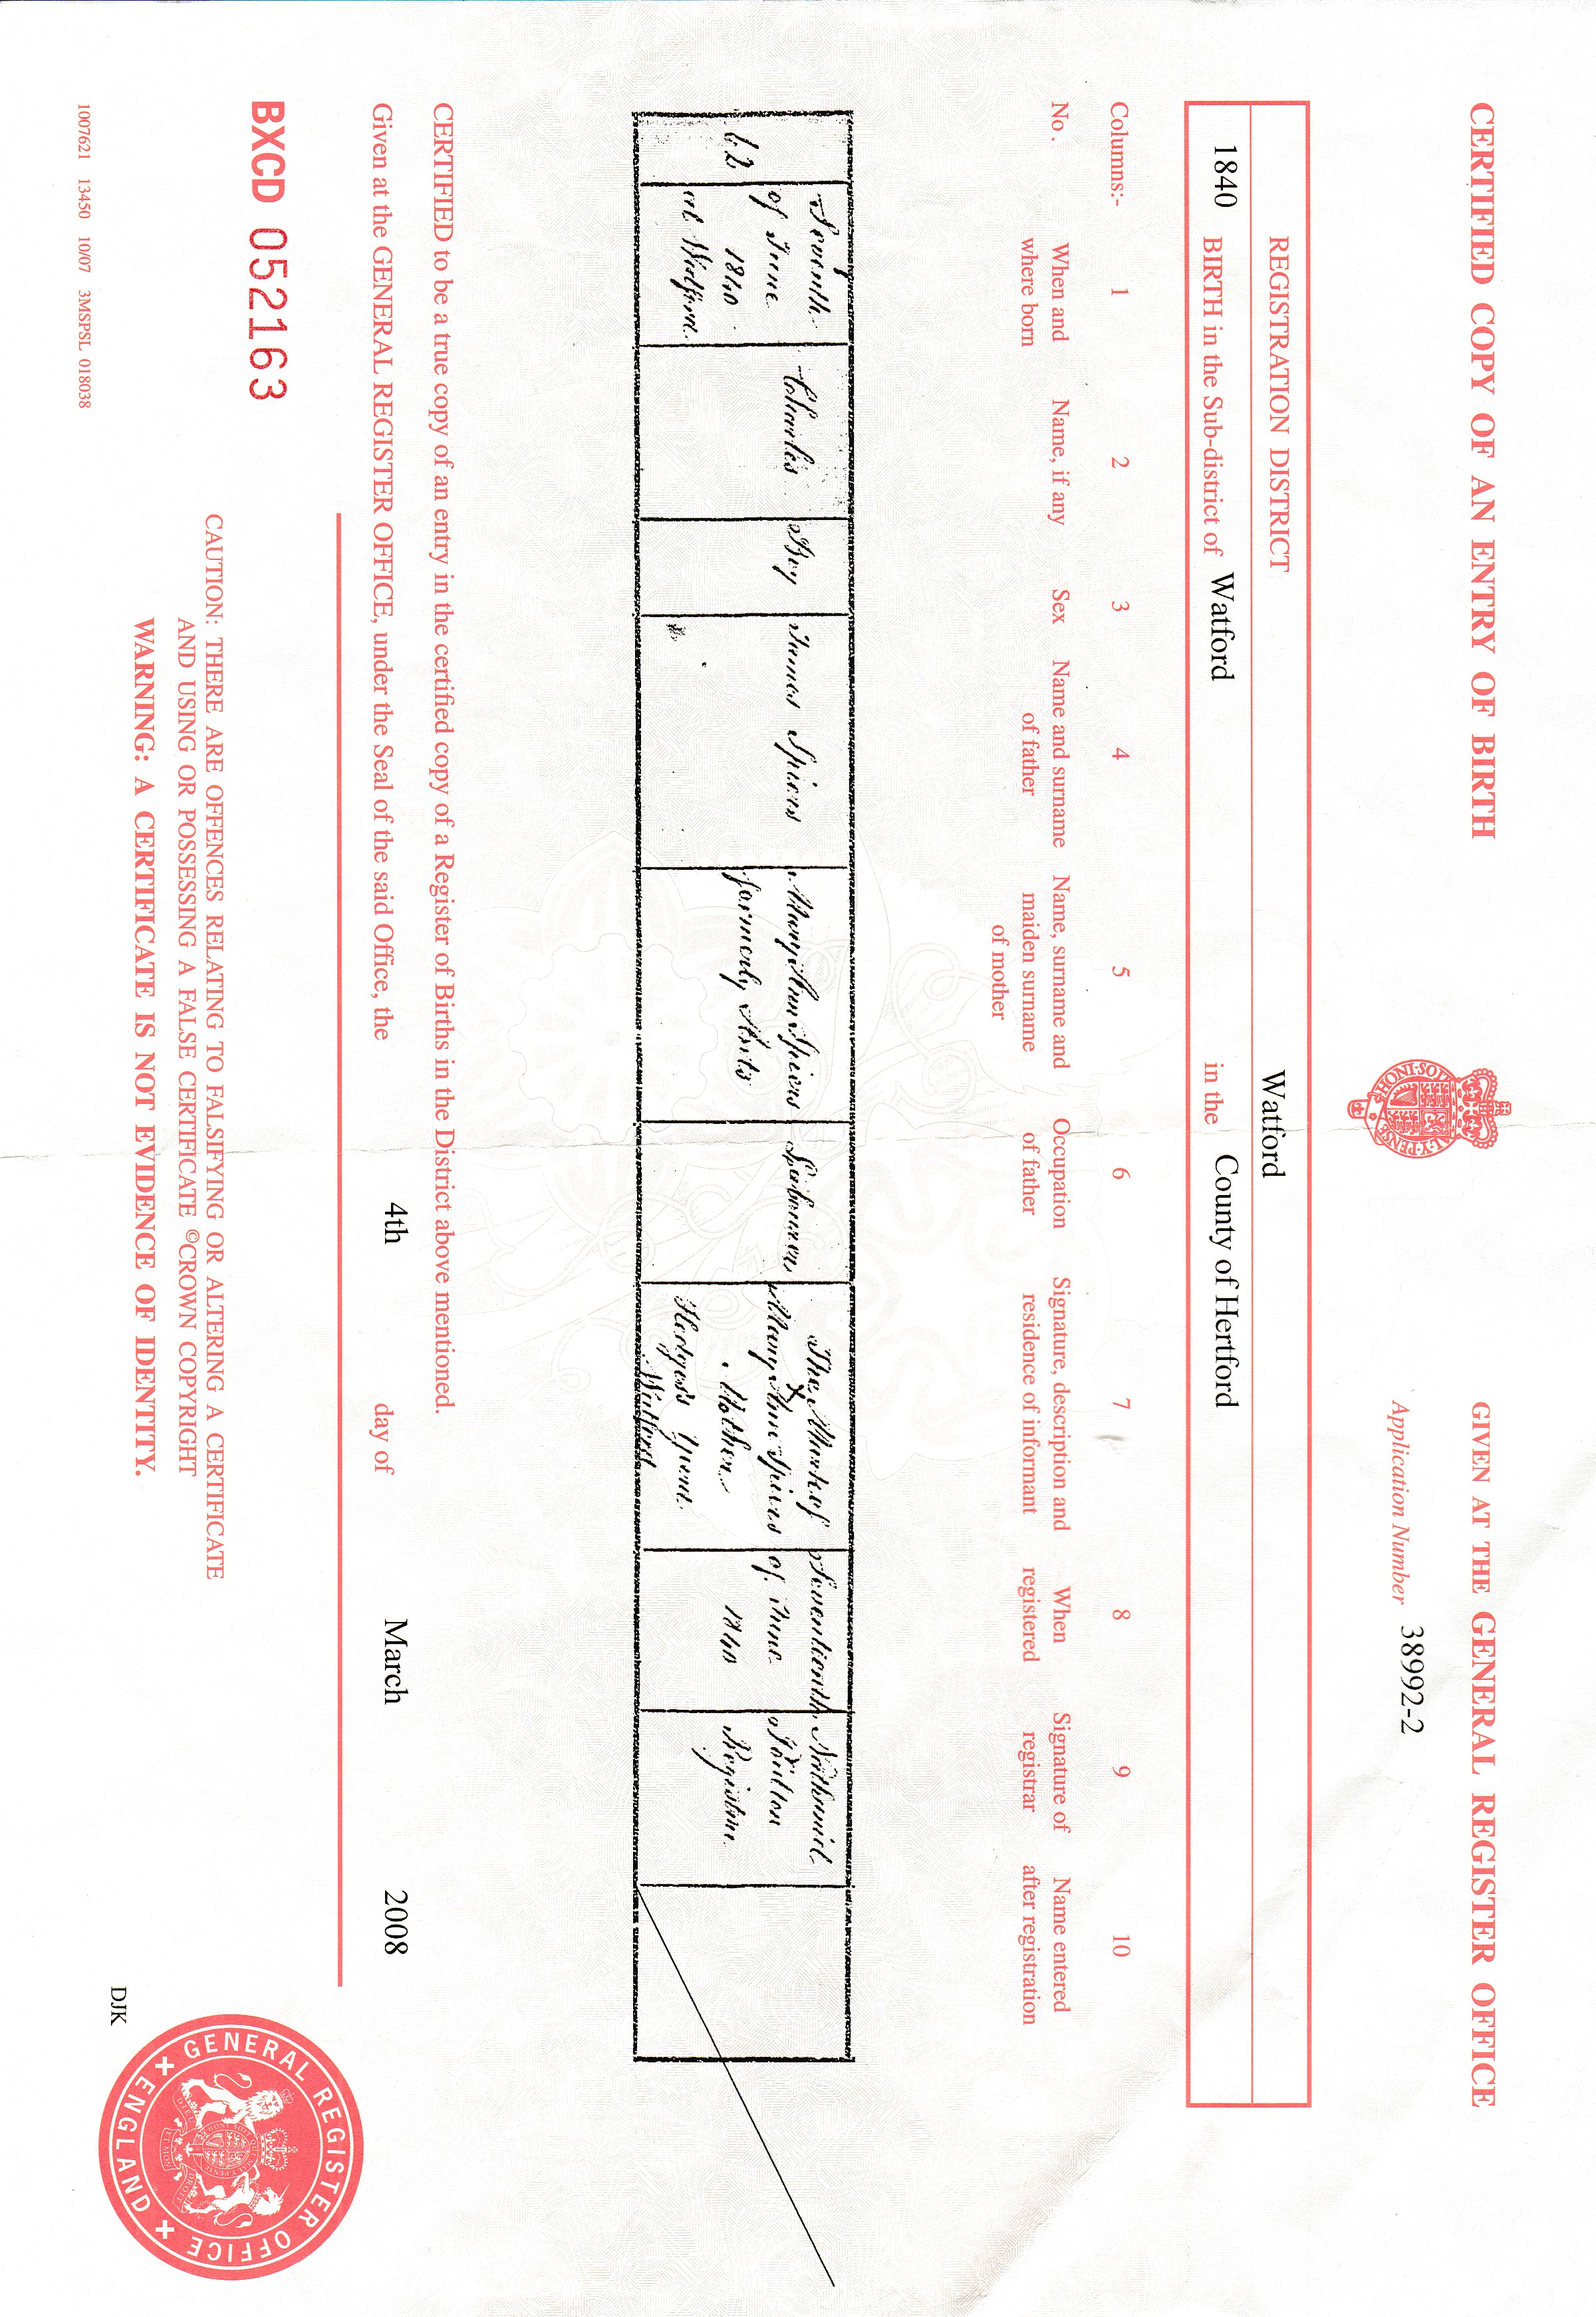 CERTIFIED COPY OF AN ENTRY OF BIRTH
GIVEN AT THE GENERAL REGISTER OFFICE
HONI·SOIT AL·Y·PENSE
Application Number 38992-2
REGISTRATION DISTRICT Watford
1840 BIRTH in the Sub-district of Watford in the County of Hertford
Columns:- 1 2 3 4 5 6 7 8 9 10
No. When and Name, if any Sex Name and surname Name, surname and Occupation Signature, description and When Signature of Name entered
where born of father maiden surname of father residence of informant registered registrar after registration
of mother
62
Seventh
of June
1840
at Watford
Charles
Boy
James Spiers
Mary Ann Spiers
formerly
Labourer
The Mark of
X
Mary Ann Spiers
Mother
Hedges's Yard
Watford
Seventienth
of June
1840
Nathaniel
Poulton
Registrar
CERTIFIED to be a true copy of an entry in the certified copy of a Register of Births in the District above mentioned.
Given at the GENERAL REGISTER OFFICE, under the Seal of the said Office, the 4th day of March 2008
BXCD 052163
GENERAL REGISTER OFFICE
ENGLAND
CAUTION: THERE ARE OFFENCES RELATING TO FALSIFYING OR ALTERING A CERTIFICATE
AND USING OR POSSESSING A FALSE CERTIFICATE ©CROWN COPYRIGHT
WARNING: A CERTIFICATE IS NOT EVIDENCE OF IDENTITY.
DJK
1007621 13450 10/07 3MSPSL 018038